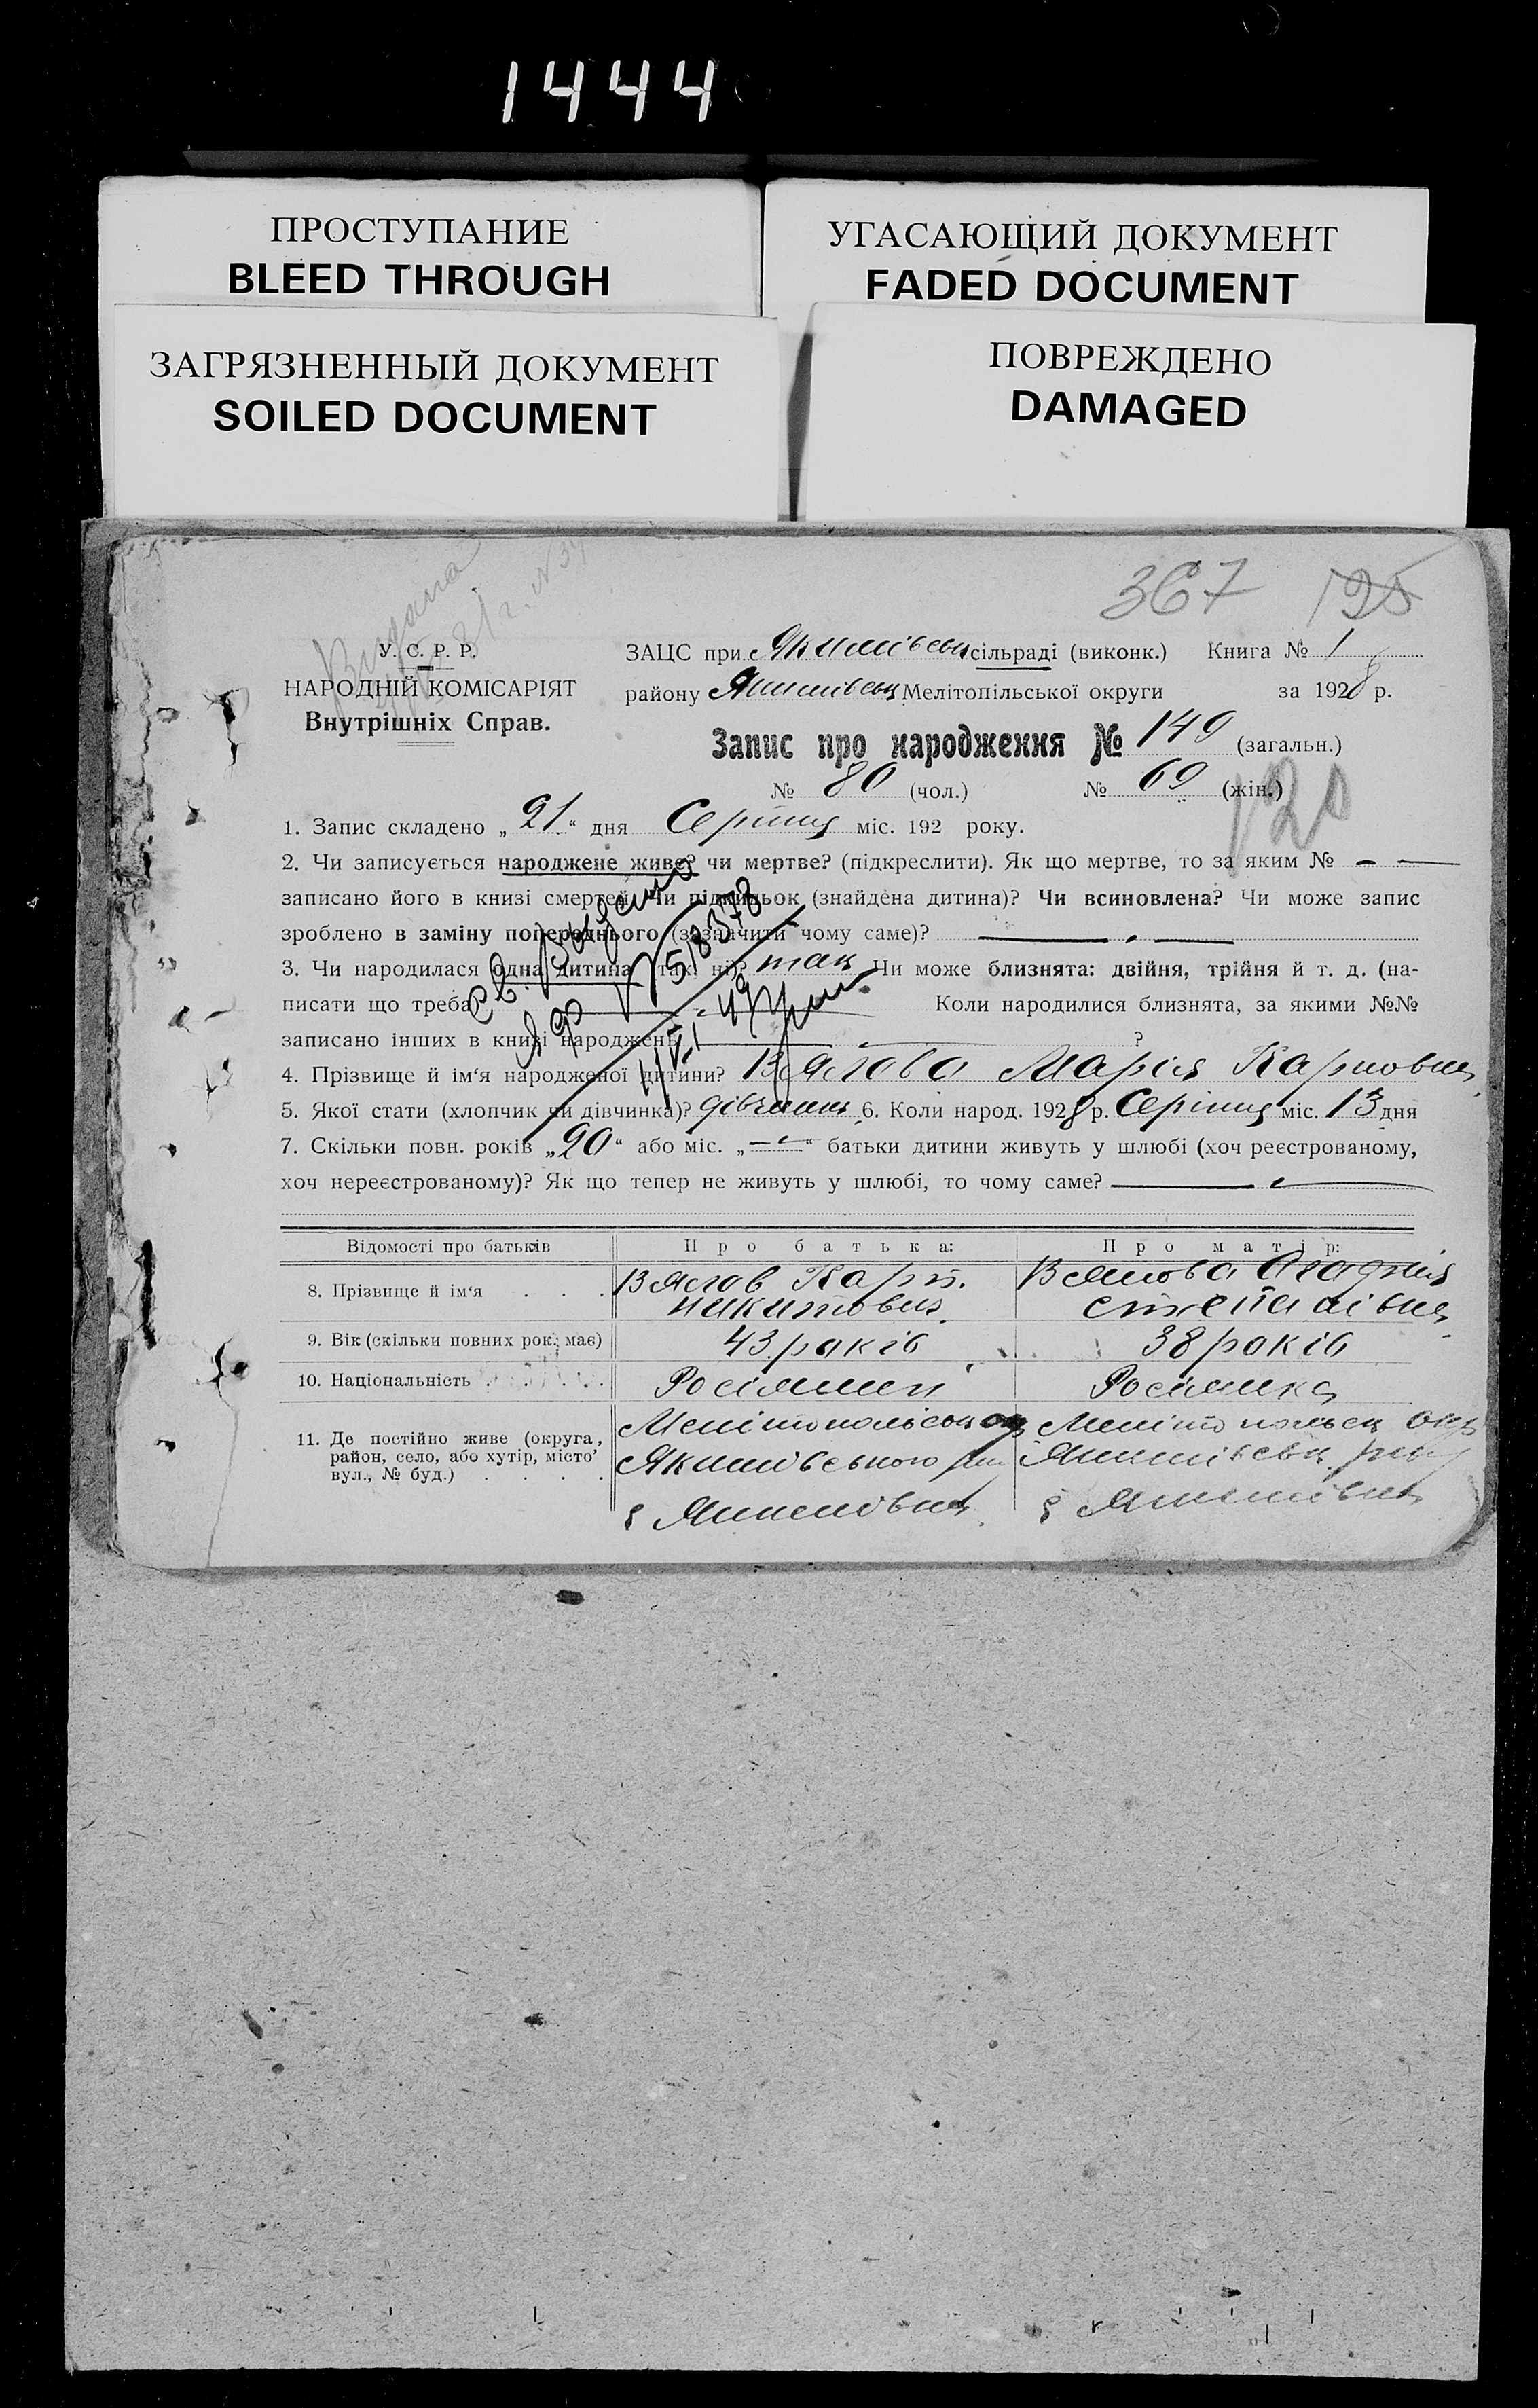 1444
ПРОСТУПАНИЕ
BLEED THROUGH
УГАСАЮЩИЙ ДОКУМЕНТ
FADED DOCUMENT
ЗАГРЯЗНЕННЫЙ ДОКУМЕНТ
SOILED DOCUMENT
ПОВРЕЖДЕНО
DAMAGED
367 125
Видана
У. С. Р. Р.
НАРОДНІЙ КОМІСАРІЯТ
Внутрішніх Справ.
ЗАЦС при Якимівськ сільраді (виконк.) Книга № 1
району Якимівськ Мелітопільської округи за 1928 р.
Запис про народження № 149 (загальн.)
№ 80 (чол.) № 69 (жін.)
1. Запис складено „21“ дня Серпня міс. 192 року.
2. Чи записується народжене живе? чи мертве? (підкреслити). Як що мертве, то за яким № —
записано його в книзі смертей? Чи підкидьок (знайдена дитина)? Чи всиновлена? Чи може запис
зроблено в заміну попереднього (зазначити чому саме)?
3. Чи народилася одна дитина (так, ні)? так Чи може близнята: двійня, трійня й т. д. (на-
писати що треба) Коли народилися близнята, за якими №№
записано інших в книзі народжень ?
4. Прізвище й ім‘я народженої дитини? Вялова Марія Карповна
5. Якої стати (хлопчик чи дівчинка)? дівчинка 6. Коли народ. 1928 р. Серпня міс. 13 дня
7. Скільки повн. років „20“ або міс. „—“ батьки дитини живуть у шлюбі (хоч реєстрованому,
хоч нереєстрованому)? Як що тепер не живуть у шлюбі, то чому саме? —
518378
Відомості про батьків Про батька: Про матір:
8. Прізвище й ім‘я . . . Вялов Карп. Вялова
Никитович Степанівна
9. Вік (скільки повних рок. має) 43 років 38 років
10. Національність . . . . . Росіянин Росіянка
11. Де постійно живе (округа,
район, село, або хутір, місто
вул., № буд.) . . . .
Мелітопольськ окр Мелітопольск окр
Якимівського рай Якимівськ рай
с Якимівка с Якимівка